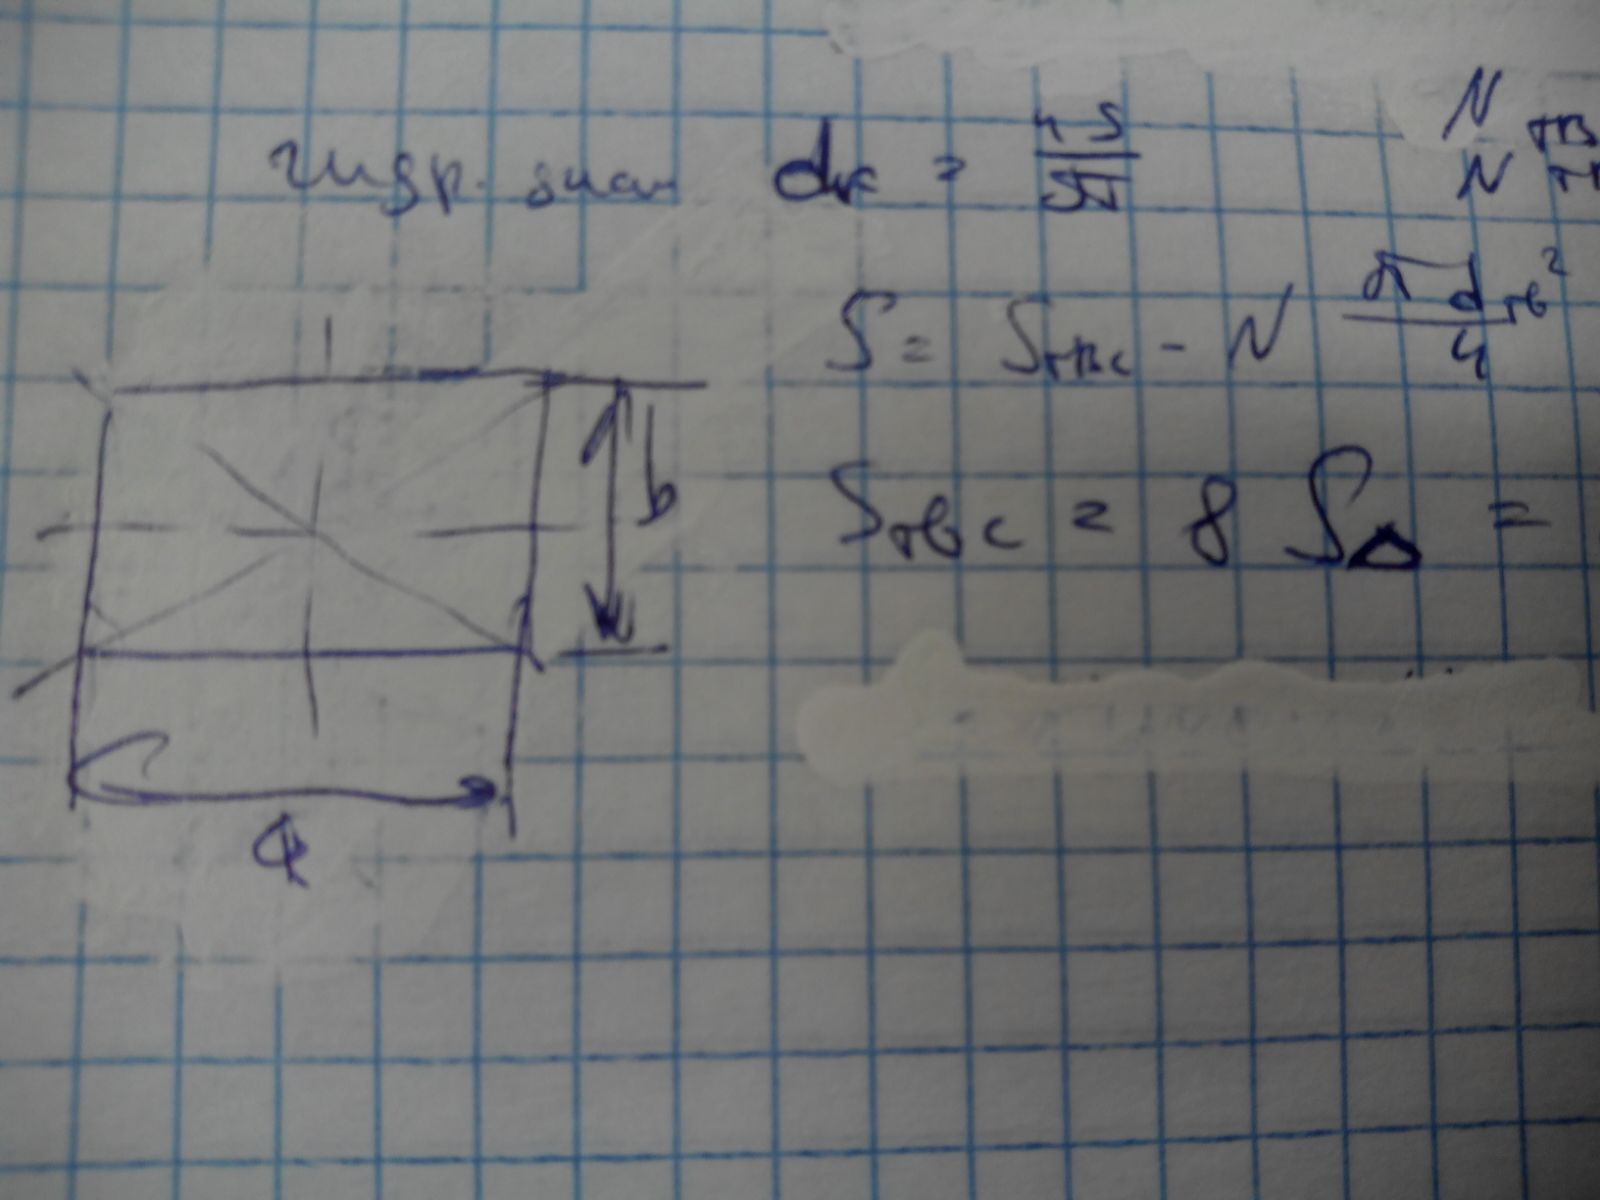 гидр. диам d_г = 4S / П
N тв
N тр
S = S_твс - N π d_тв² / 4
b
S_твс = 8 S_Δ =
a